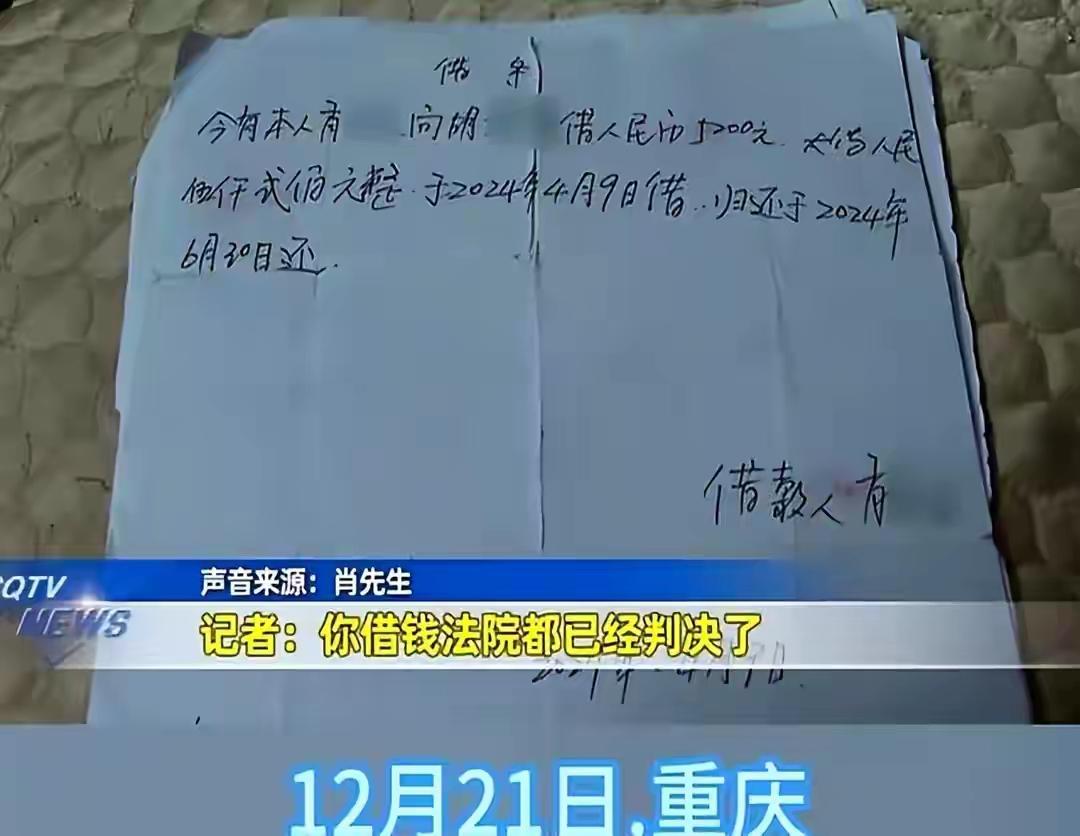 借条
今有本人肖 向胡 借人民币5200元. 大借人民
伍仟弍佰元整.于2024年4月9日借..归还于2024年
6月30日还.
借款人 肖
2024年.4月9日.
CQTV
NEWS
声音来源：肖先生
记者：你借钱法院都已经判决了
12月21日,重庆